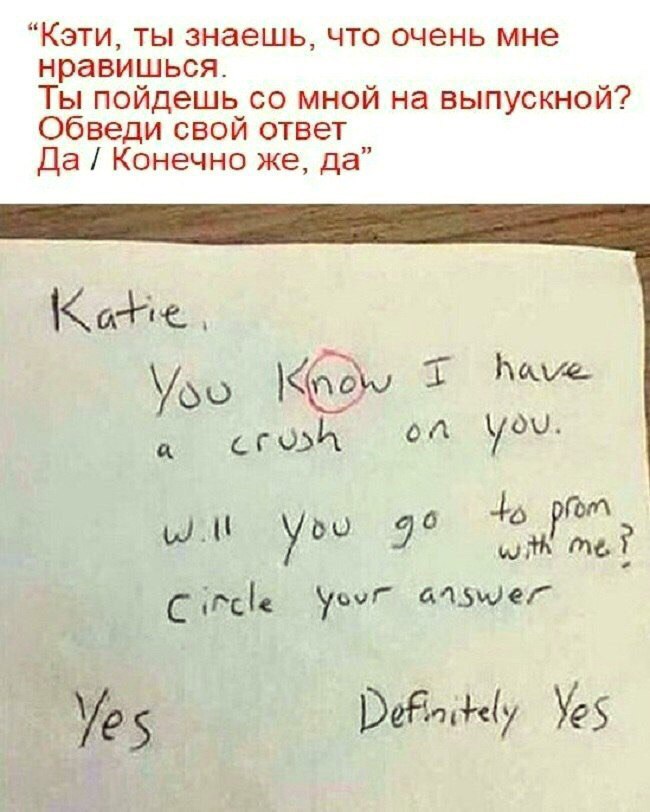 “Кэти, ты знаешь, что очень мне
нравишься.
Ты пойдешь со мной на выпускной?
Обведи свой ответ
Да / Конечно же, да”
Katie,
You Know I have
a crush on you.
will you go to prom
with me?
Circle your answer
Yes Definitely Yes